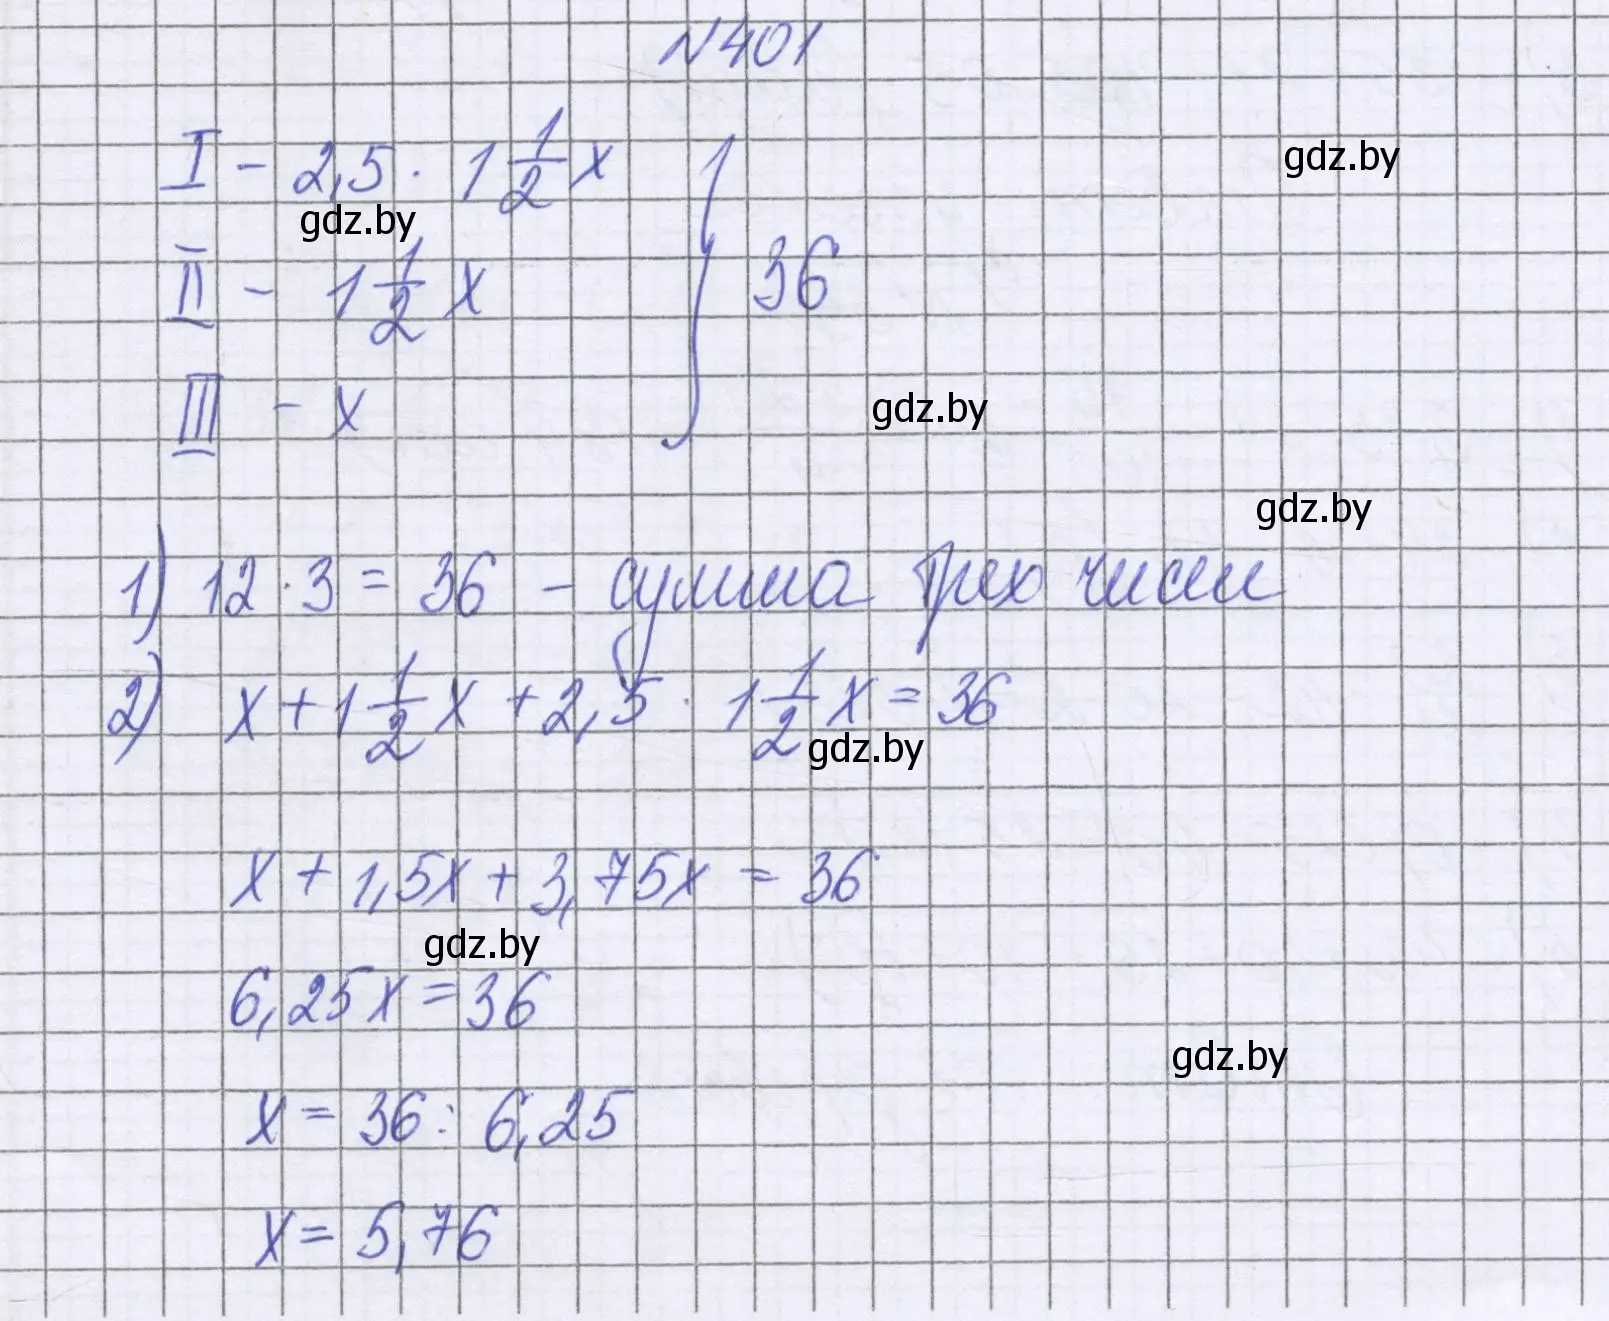 №401
I - 2,5 · 1 1/2 x
gdz.by
gdz.by
II - 1 1/2 x
36
III - x
gdz.by
gdz.by
1) 12 · 3 = 36 - сумма трех чисел
2) x + 1 1/2 x + 2,5 · 1 1/2 x = 36
gdz.by
x + 1,5x + 3,75x = 36
gdz.by
6,25x = 36
gdz.by
x = 36 : 6,25
x = 5,76